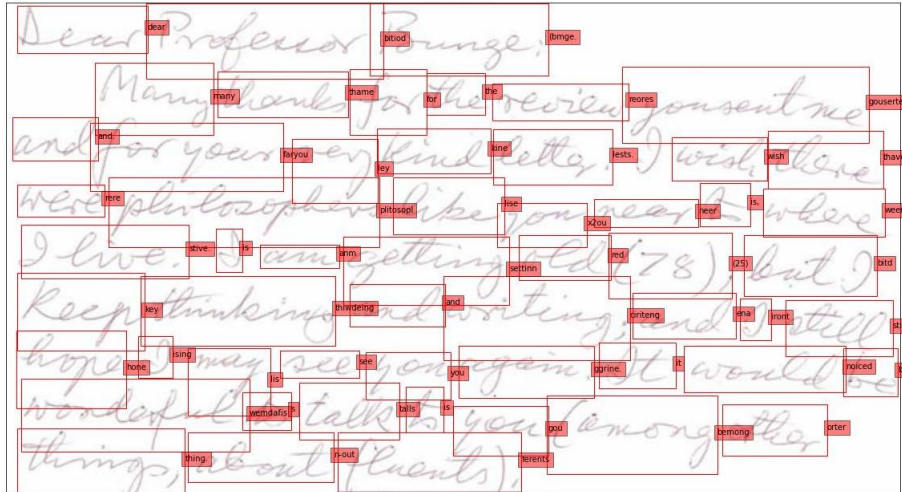 Dear Professor Bunge:
Many thanks for the review you sent me
and for your very kind letter. I wish there
were philosophers like you near to where
I live. I am getting old (78), but I
Keep thinking and writing, and I still
hope I may see you again. It would be
wonderful to talk to you (among other
things, about fluents).
dear
bitiod
(bmge.
many
thame
for
the
reores
gouserte
and.
faryou
ley
kine
lests.
wish
thav
rere
plitosopl
lise
x2ou
neer
is,
weer
stive.
is
anm.
settinn
red
(25)
bitd
key
thiwdelng
and
ciriteng
ena
iront
sti
hone
ising
lis
see
you
ggrine.
it
noiced
wemdafis
talls
is
gou
bemong
orter
thing.
n-out
ferents